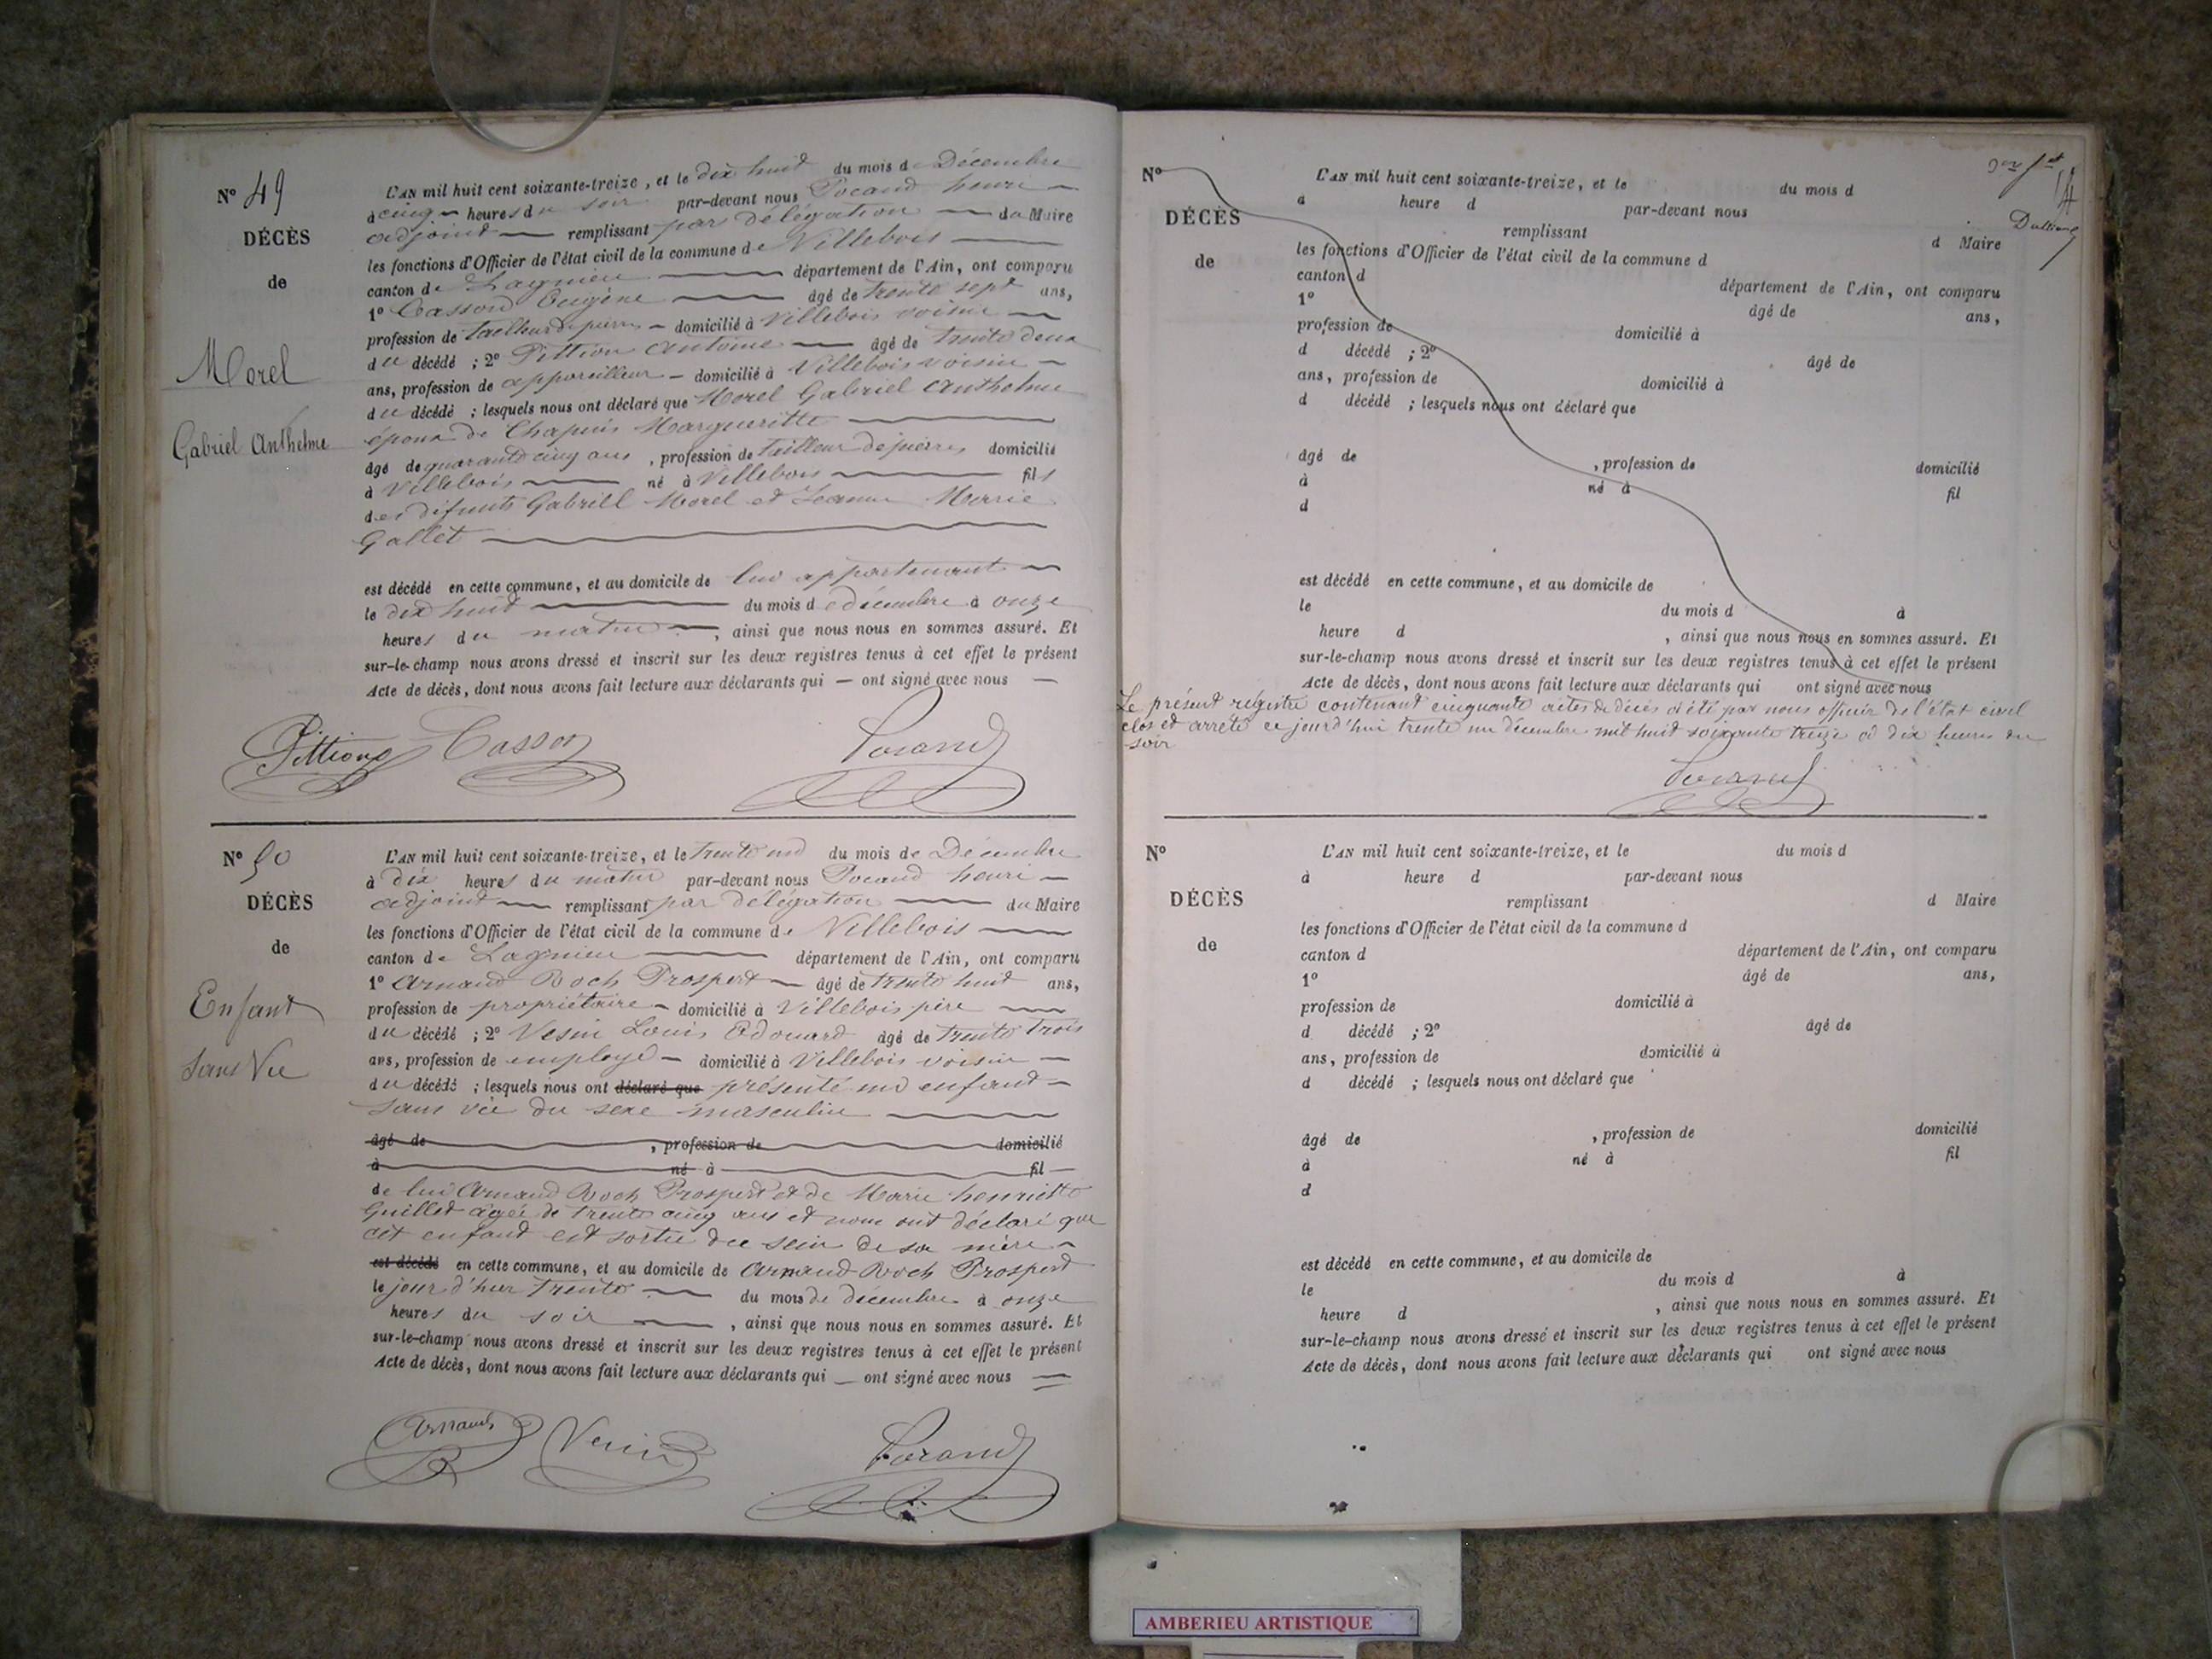 N° 49
DÉCÈS
de
Morel
Gabriel Anthelme
L'AN mil huit cent soixante-treize, et le dix huit du mois de Décembre
à cinq heures du soir par-devant nous Pocand henri
adjoint remplissant par délégation du Maire
les fonctions d'Officier de l'état civil de la commune de Villebois
canton de Lagnieu département de l'Ain, ont comparu
1° Casson Eugène âgé de trente sept ans,
profession de tailleur de pierres domicilié à Villebois voisin
du décédé ; 2° Pittion Antoine âgé de trente deux
ans, profession de appareilleur domicilié à Villebois voisin
du décédé ; lesquels nous ont déclaré que Morel Gabriel Anthelme
époux de Chapuis Margueritte
âgé de quarante cinq ans, profession de tailleur de pierres domicilié
à Villebois né à Villebois fils
des défunts Gabriell Morel et Jeanne Marie
Gallet
est décédé en cette commune, et au domicile de lui appartenant
le dix huit du mois de décembre à onze
heures du matin, ainsi que nous nous en sommes assuré. Et
sur-le-champ nous avons dressé et inscrit sur les deux registres tenus à cet effet le présent
Acte de décès, dont nous avons fait lecture aux déclarants qui — ont signé avec nous —
Pittion Casson Pocand
N° 50
DÉCÈS
de
Enfant
Sans Vie
L'AN mil huit cent soixante-treize, et le trente un du mois de Décembre
à dix heures du matin par-devant nous Pocand henri
adjoint remplissant par délégation du Maire
les fonctions d'Officier de l'état civil de la commune de Villebois
canton de Lagnieu département de l'Ain, ont comparu
1° Arnaud Roch Prospert âgé de trente huit ans,
profession de propriétaire domicilié à Villebois père
du décédé ; 2° Vesin Louis Edouard âgé de trente trois
ans, profession de employé domicilié à Villebois voisin
du décédé ; lesquels nous ont déclaré que présenté un enfant
sans vie du sexe masculin
âgé de , profession de domicilié
à né à fil
de lui Arnaud Roch Prospert et de Marie henriette
Guillet âgée de trente cinq ans et nous ont déclaré que
cet enfant est sortie du sein de sa mère
est décédé en cette commune, et au domicile de Arnaud Roch Prospert
le jour d'hier trente du mois de décembre à onze
heures du soir, ainsi que nous nous en sommes assuré. Et
sur-le-champ nous avons dressé et inscrit sur les deux registres tenus à cet effet le présent
Acte de décès, dont nous avons fait lecture aux déclarants qui — ont signé avec nous
Arnaud Vesin Pocand
N°
DÉCÈS
de
L'AN mil huit cent soixante-treize, et le du mois d
à heure d par-devant nous
remplissant d Maire
les fonctions d'Officier de l'état civil de la commune d
canton d département de l'Ain, ont comparu
1° âgé de ans,
profession de domicilié à
d décédé ; 2° âgé de
ans, profession de domicilié à
d décédé ; lesquels nous ont déclaré que
âgé de , profession de domicilié
à né à fil
d
est décédé en cette commune, et au domicile de
le du mois d à
heure d , ainsi que nous nous en sommes assuré. Et
sur-le-champ nous avons dressé et inscrit sur les deux registres tenus à cet effet le présent
Acte de décès, dont nous avons fait lecture aux déclarants qui ont signé avec nous
Le présent régistre contenant cinquante actes de décès a été par nous officier de l'état civil
clos et arrêté ce jourd'hui trente un décembre mil huit soixante treize à dix heures du
soir
Pocand
N°
DÉCÈS
de
L'AN mil huit cent soixante-treize, et le du mois d
à heure d par-devant nous
remplissant d Maire
les fonctions d'Officier de l'état civil de la commune d
canton d département de l'Ain, ont comparu
1° âgé de ans,
profession de domicilié à
d décédé ; 2° âgé de
ans, profession de domicilié à
d décédé ; lesquels nous ont déclaré que
âgé de , profession de domicilié
à né à fil
d
est décédé en cette commune, et au domicile de
le du mois d à
heure d , ainsi que nous nous en sommes assuré. Et
sur-le-champ nous avons dressé et inscrit sur les deux registres tenus à cet effet le présent
Acte de décès, dont nous avons fait lecture aux déclarants qui ont signé avec nous
AMBERIEU ARTISTIQUE